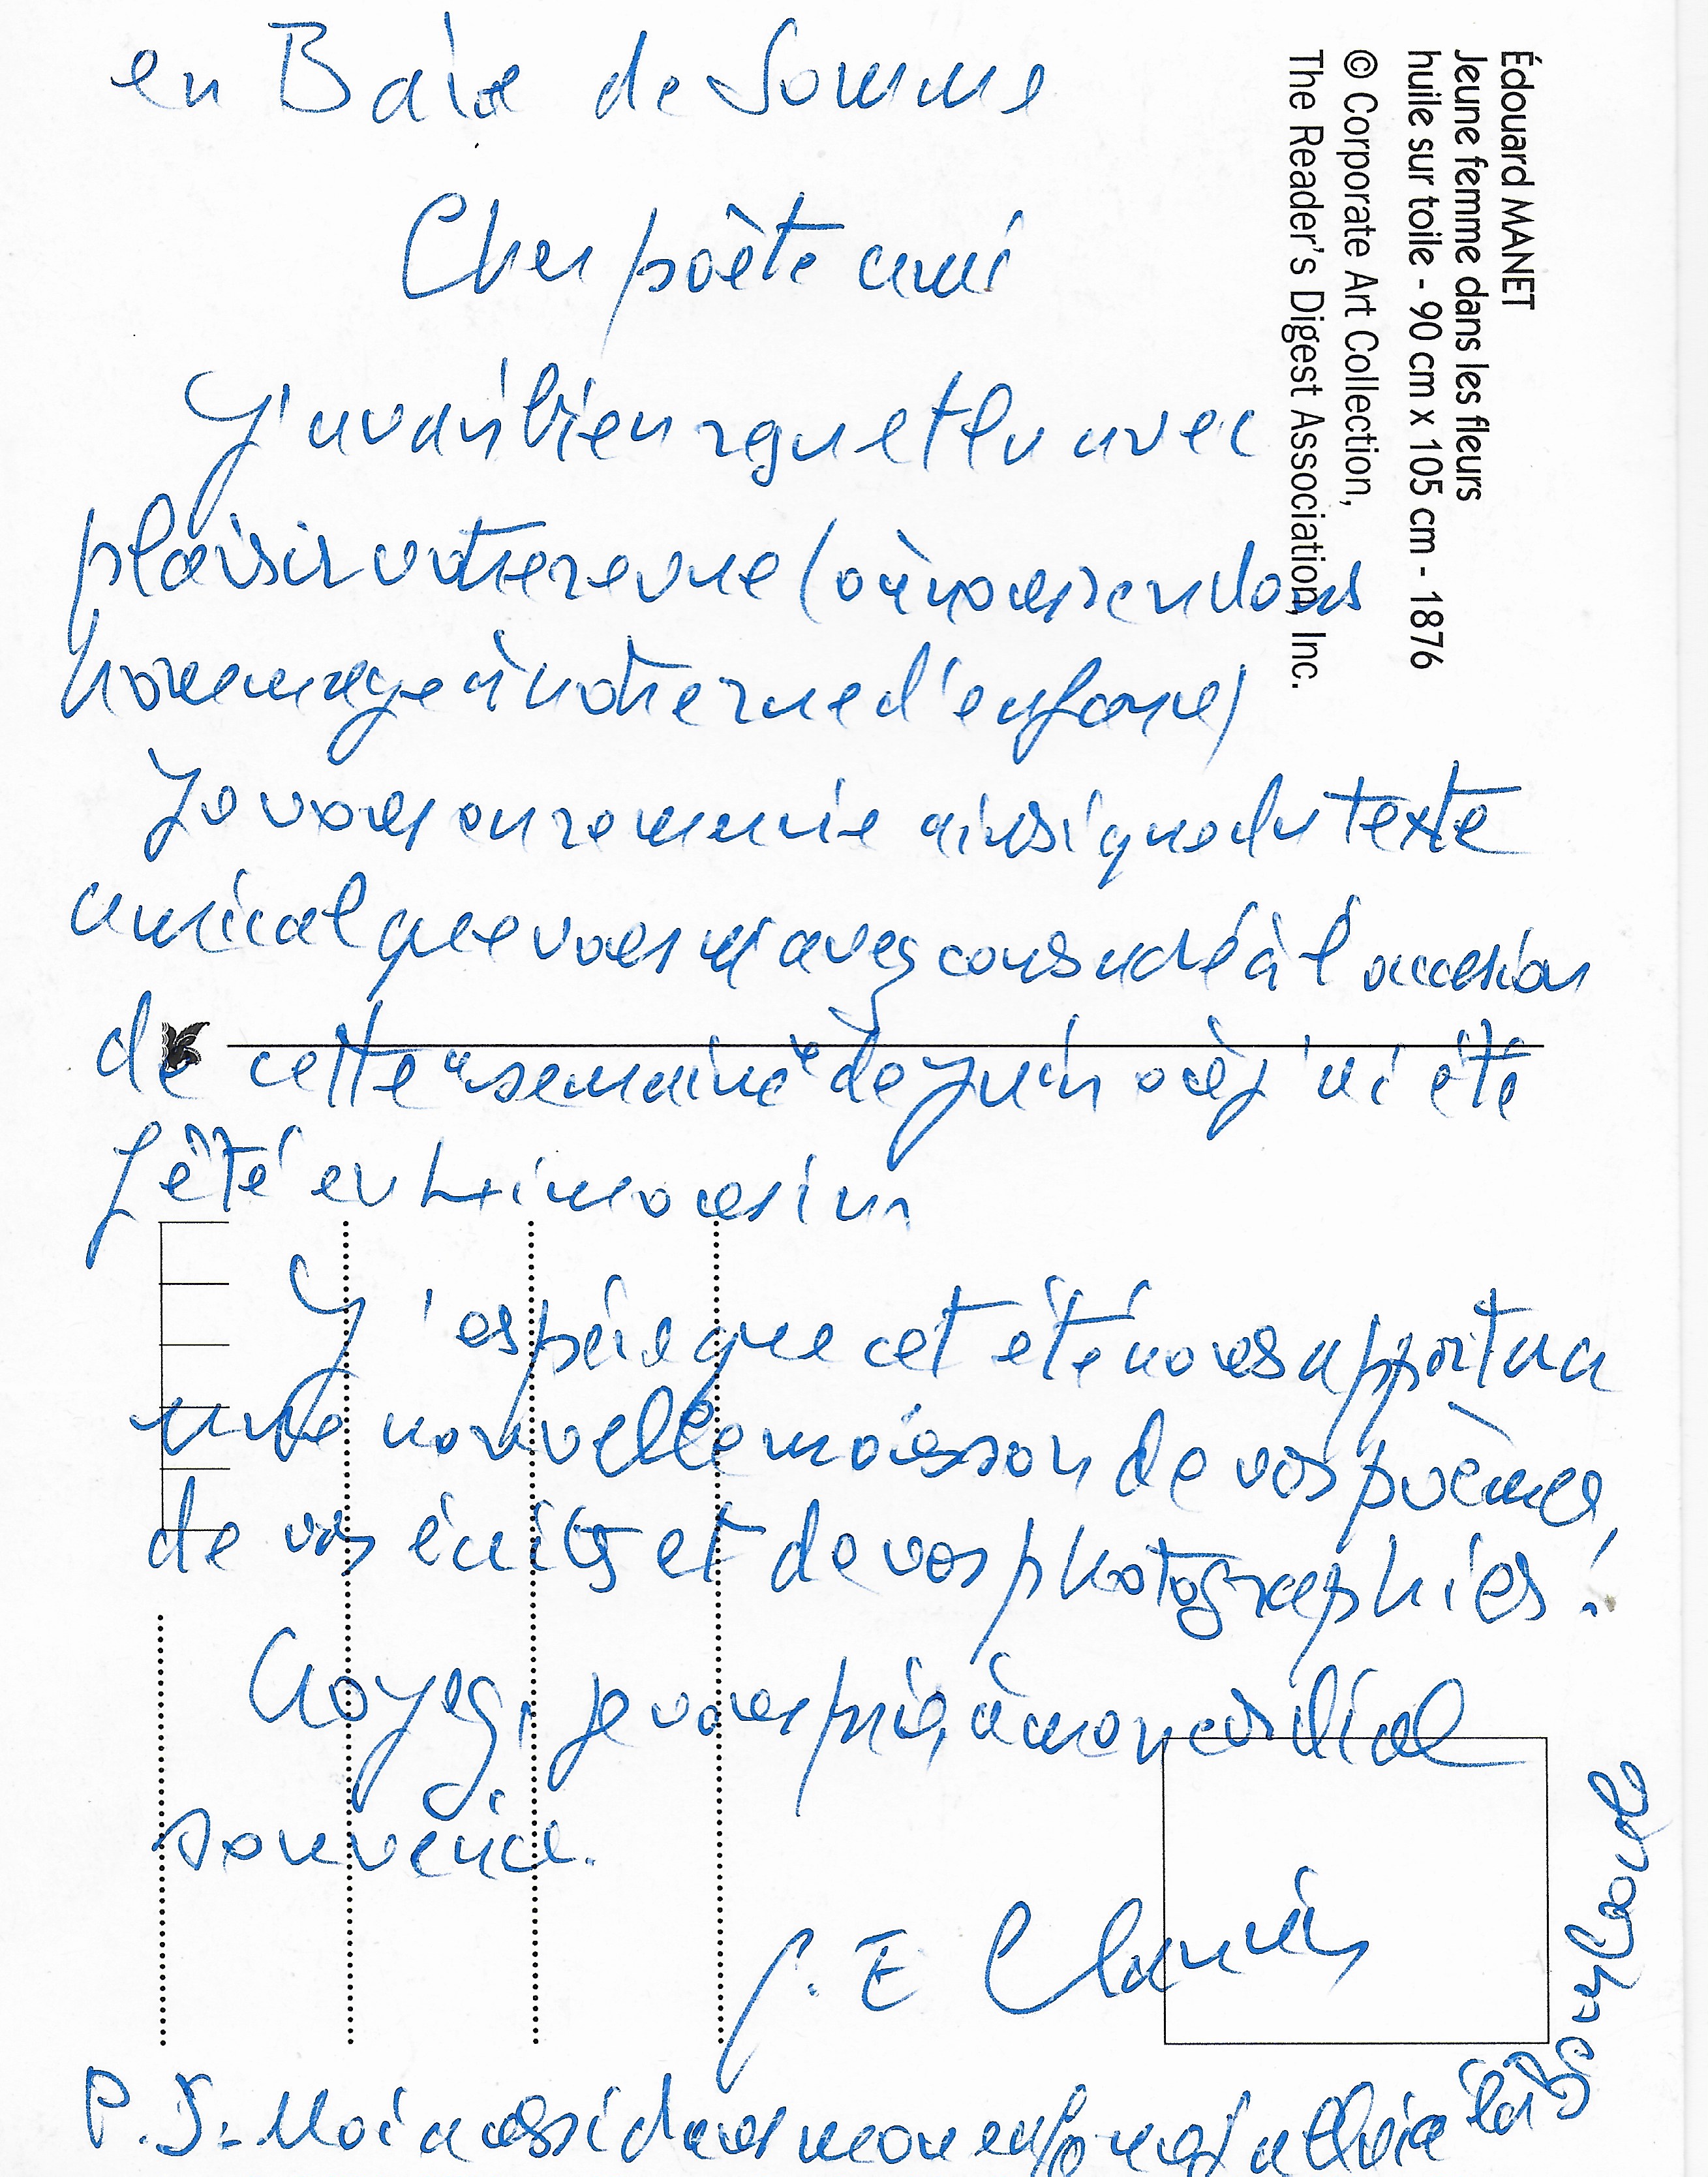 en Baie de Somme
Cher poète ami
J'avais bien reçu et lu avec
plaisir votre revue (où vous rendons
hommage à notre rue d'enfance)
Je vous en remercie ainsi que du texte
amical que vous m'avez consacré à l'occasion
de cette "semaine" de juin où j'ai été
fêté en Limousin
J'espère que cet été nous apportera
une nouvelle moisson de vos poèmes,
de vos écrits et de vos photographies !
Croyez, je vous prie, à mon cordial
souvenir.
G. E. Clancier
P.S. Moi aussi dans mon enfance j'allais à la
Édouard MANET
Jeune femme dans les fleurs
huile sur toile - 90 cm x 105 cm - 1876
© Corporate Art Collection,
The Reader's Digest Association, Inc.